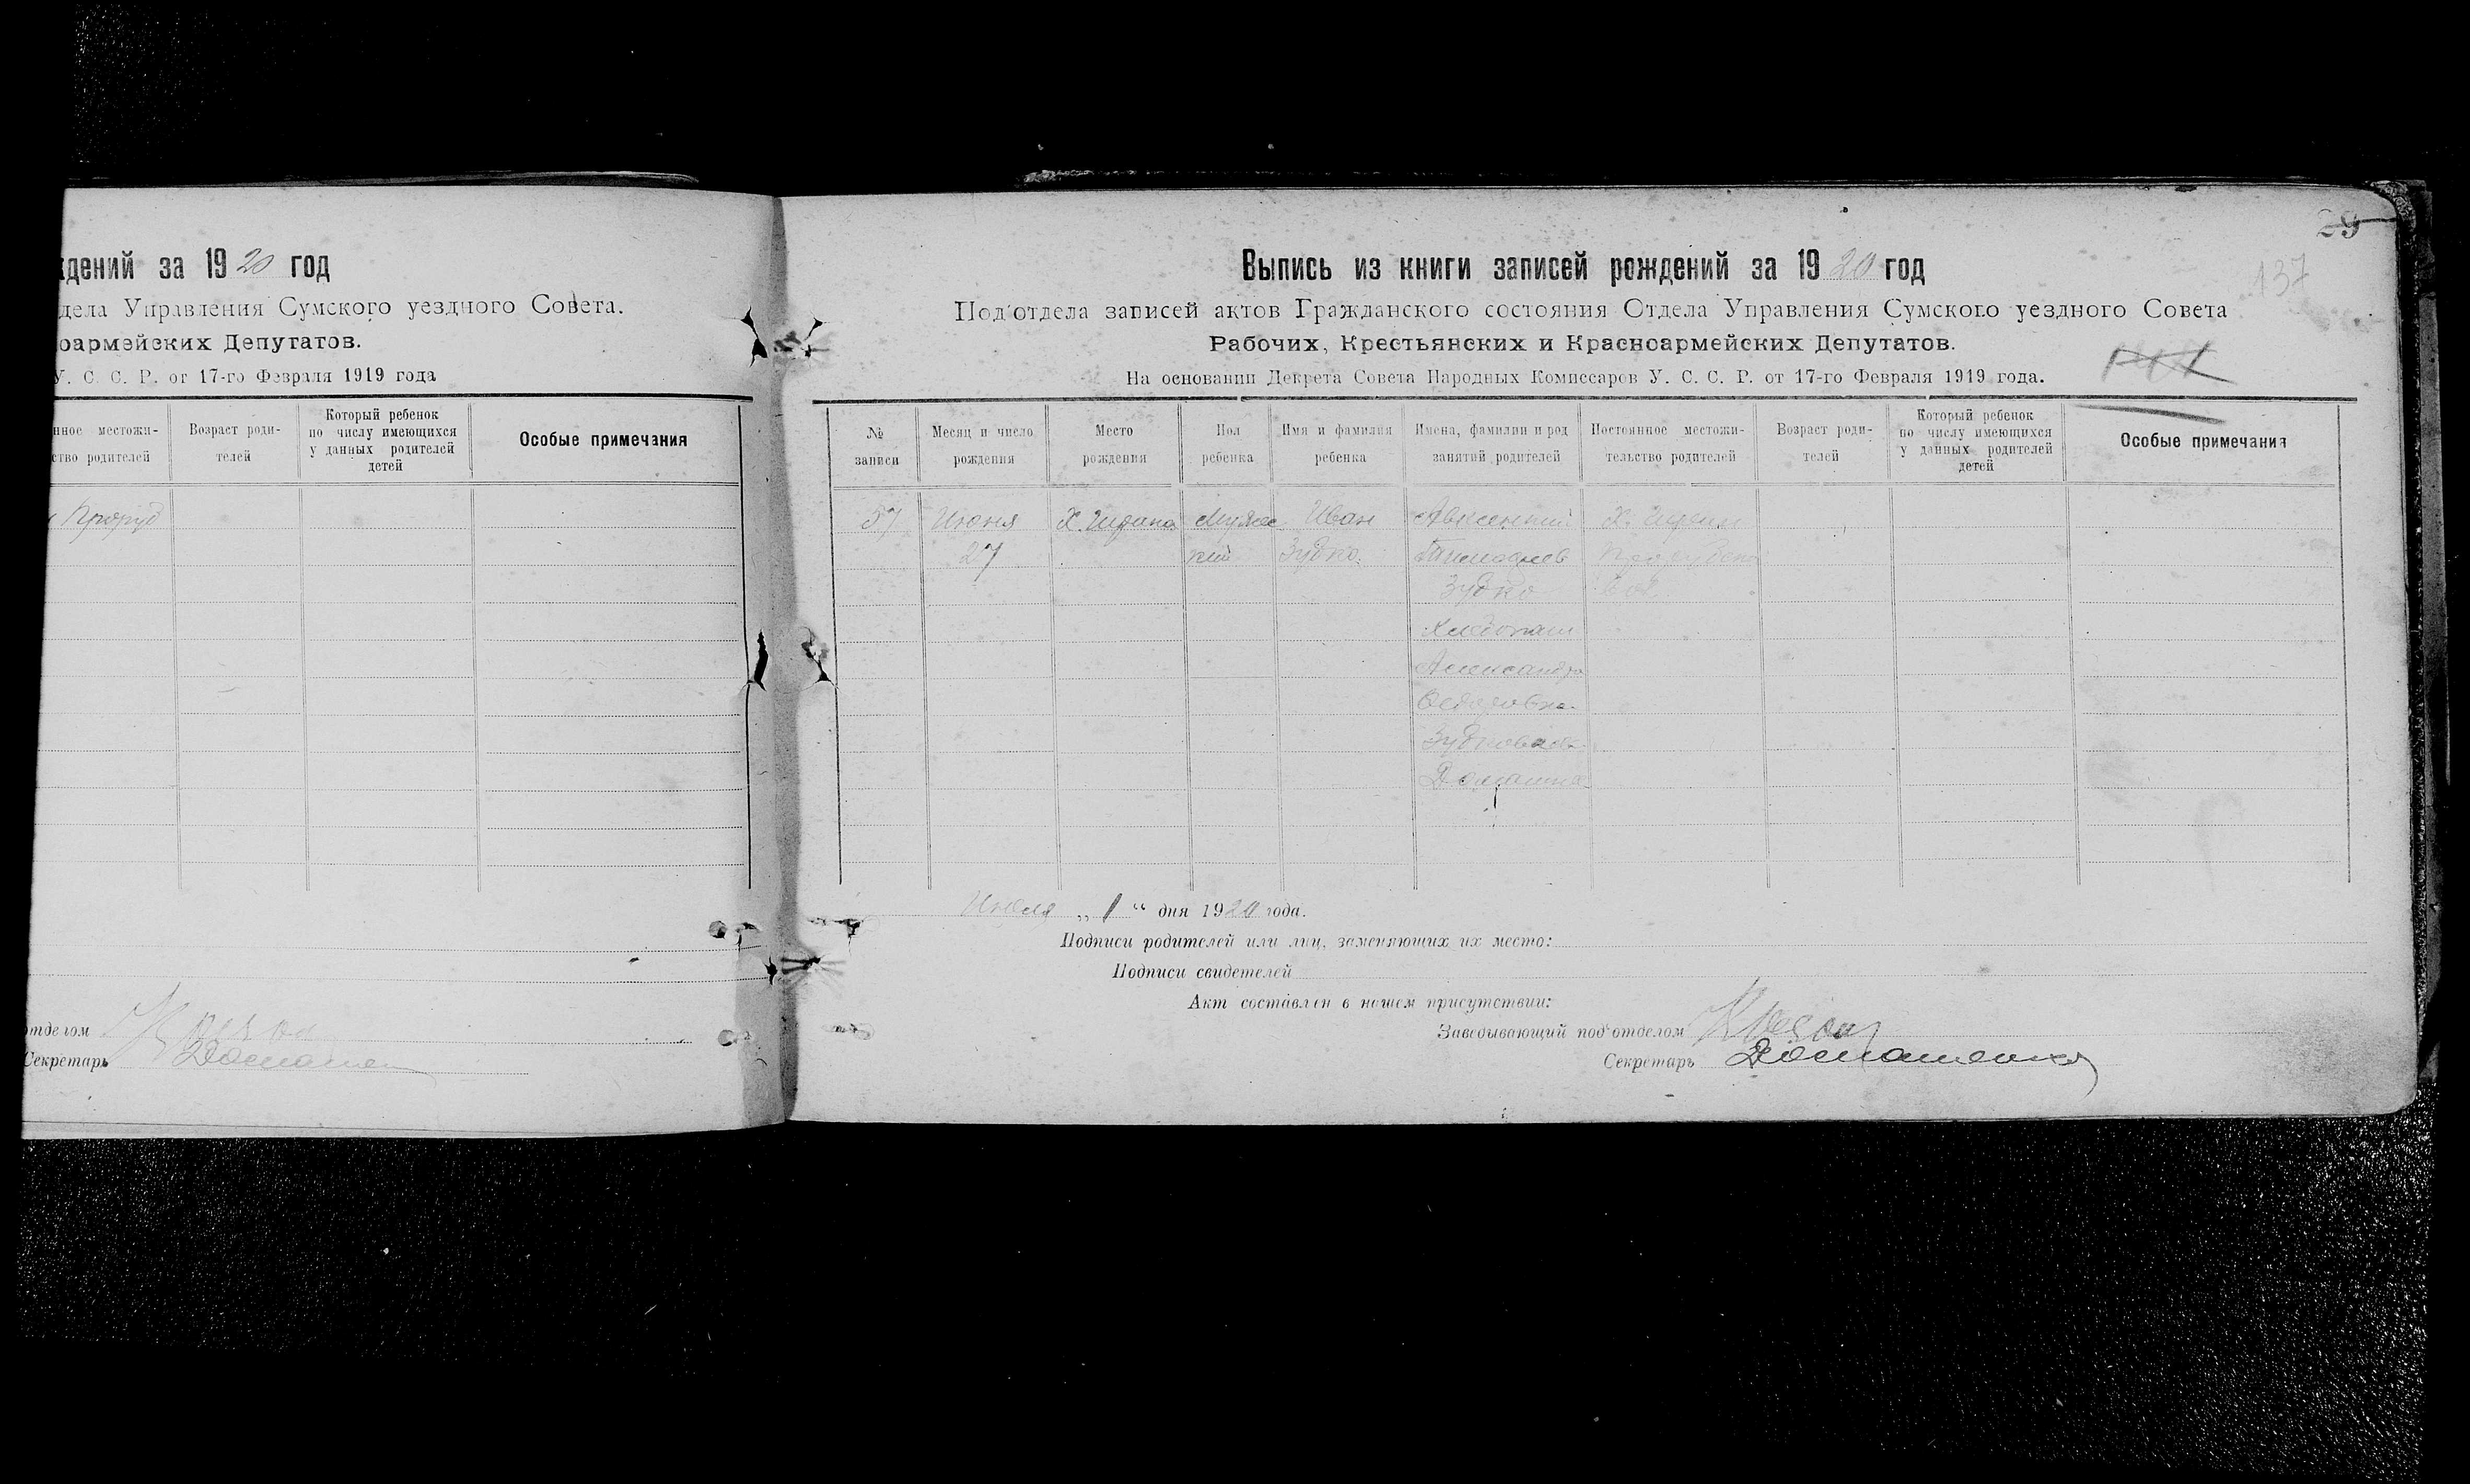 ждений за 1920 год
дела Управления Сумского уездного Совета.
оармейских Депутатов.
У. С. С. Р. от 17-го Февраля 1919 года
нное местожи-
ство родителей
Возраст роди-
телей
Который ребенок
по числу имеющихся
у данных родителей
детей
Особые примечания
отделом
Секретарь
29
137
Выпись из книги записей рождений за 1920 год
Под'отдела записей актов Гражданского состояния Отдела Управления Сумского уездного Совета
Рабочих, Крестьянских и Красноармейских Депутатов.
На основании Декрета Совета Народных Комиссаров У. С. С. Р. от 17-го Февраля 1919 года.
№
записи
Месяц и число
рождения
Место
рождения
Пол
ребенка
Имя и фамилия
ребенка
Имена, фамилии и род
занятий родителей
Постоянное местожи-
тельство родителей
Возраст роди-
телей
Который ребенок
по числу имеющихся
у данных родителей
детей
Особые примечания
57
Июня
27
Х.
Мужес
кий
Иван
Зудко.
Авксентий
Тимофеев
Зудко
Хлебопаш
Александра
Федоровна
Зудкова
Домашня
Х.
Июля „ 1 “ дня 1920 года.
Подписи родителей или лиц, заменяющих их место:
Подписи свидетелей
Акт составлен в нашем присутствии:
Заведывающий под'отделом
Секретарь Домашенко